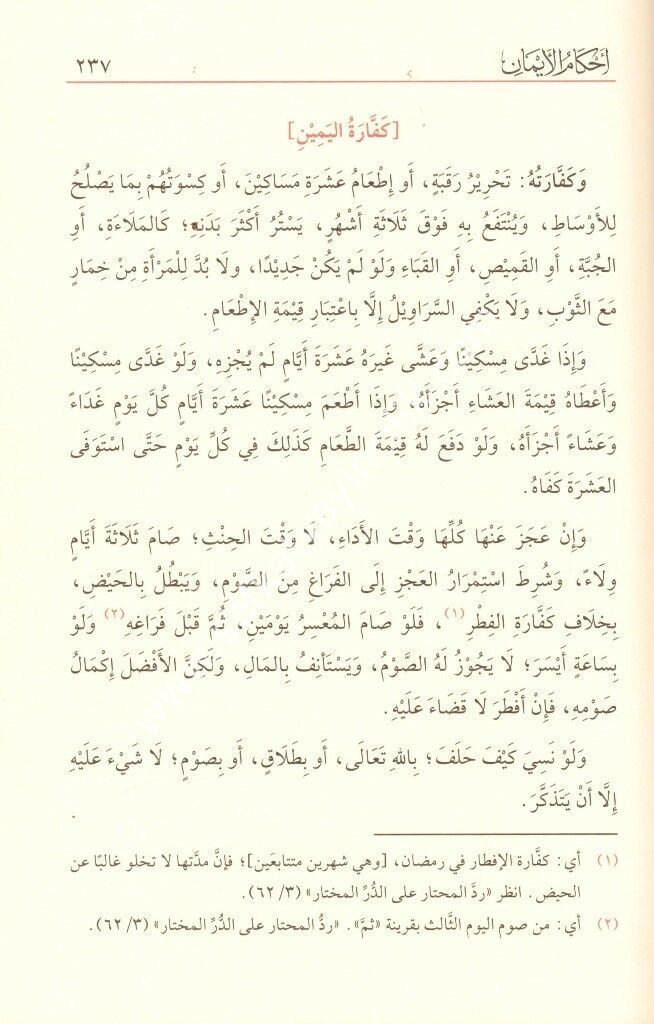 أحكام الأيمان ٢٣٧
[كَفَّارَةُ اليَمِيْنِ]
وَكَفَّارَتُهُ: تَحْرِيْرُ رَقَبَةٍ، أَو إِطْعَامُ عَشَرَةِ مَسَاكِيْنَ، أَو كِسْوَتُهُمْ بِمَا يَصْلُحُ
لِلأَوْسَاطِ، وَيُنْتَفَعُ بِهِ فَوْقَ ثَلَاثَةِ أَشْهُرٍ، يَسْتُرُ أَكْثَرَ بَدَنِهِ؛ كَالمَلَاءَةِ، أَوِ
الجُبَّةِ، أَوِ القَمِيْصِ، أَوِ القَبَاءِ وَلَو لَمْ يَكُنْ جَدِيْدًا، ولَا بُدَّ لِلْمَرْأَةِ مِنْ خِمَارٍ
مَعَ الثَّوْبِ، وَلَا يَكْفِي السَّرَاوِيْلُ إِلَّا بِاعْتِبَارِ قِيْمَةِ الإِطْعَامِ.
وَإِذَا غَدَّى مِسْكِيْنًا وَعَشَّى غَيرَهُ عَشَرَةَ أَيَّامٍ لَمْ يُجْزِهِ، وَلَوْ غَدَّى مِسْكِيْنًا
وَأَعْطَاهُ قِيْمَةَ العَشَاءِ أَجْزَأَهُ، وَإِذَا أَطْعَمَ مِسْكِيْنًا عَشَرَةَ أَيَّامٍ كُلَّ يَوْمٍ غَدَاءً
وَعَشَاءً أَجْزَأَهُ، وَلَوْ دَفَعَ لَهُ قِيْمَةَ الطَّعَامِ كَذَلِكَ فِي كُلِّ يَوْمٍ حَتَّى اسْتَوفَى
العَشَرَةَ كَفَاهُ.
وَإِنْ عَجَزَ عَنْهَا كُلِّهَا وَقْتَ الأَدَاءِ، لَا وَقْتَ الحِنْثِ؛ صَامَ ثَلَاثَةَ أَيَّامٍ
وِلَاءً، وَشُرِطَ اسْتِمْرَارُ العَجْزِ إِلَى الفَرَاغِ مِنَ الصَّوْمِ، وَيَبْطُلُ بِالحَيْضِ،
بِخِلَافِ كَفَّارَةِ الفِطْرِ(١)، فَلَوْ صَامَ المُعْسِرُ يَوْمَيْنِ، ثُمَّ قَبْلَ فَرَاغِهِ(٢) وَلَوْ
بِسَاعَةٍ أَيْسَرَ؛ لَا يَجُوْزُ لَهُ الصَّوْمُ، وَيَسْتَأْنِفُ بِالمَالِ، وَلَكِنَّ الأَفْضَلَ إِكْمَالُ
صَوْمِهِ، فَإِنْ أَفْطَرَ لَا قَضَاءَ عَلَيْهِ.
وَلَو نَسِيَ كَيْفَ حَلَفَ؛ بِاللهِ تَعَالَى، أَو بِطَلَاقٍ، أَو بِصَوْمٍ؛ لَا شَيْءَ عَلَيْهِ
إِلَّا أَنْ يَتَذَكَّرَ.
(١) أي: كفَّارة الإفطار في رمضان، [وهي شهرين متتابعَين]؛ فإنَّ مدَّتها لا تخلو غالبًا عن
الحيض. انظر «ردَّ المحتار على الدُّرِّ المختار» (٣/ ٦٢).
(٢) أي: من صوم اليوم الثَّالث بقرينة «ثمَّ». «ردُّ المحتار على الدُّرِّ المختار» (٣/ ٦٢).